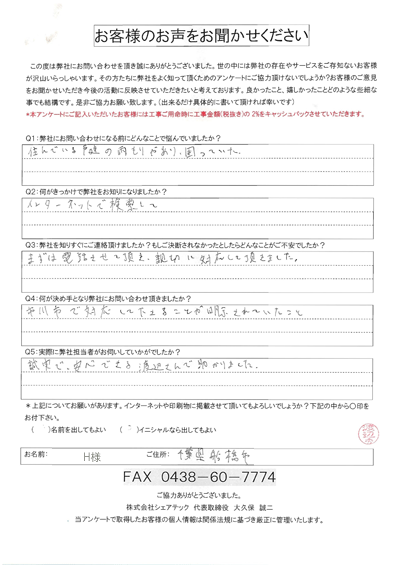 お客様のお声をお聞かせください
この度は弊社にお問い合わせを頂き誠にありがとうございました。世の中には弊社の存在やサービスをご存知ないお客様
が沢山いらっしゃいます。その方たちに弊社をよく知って頂くためのアンケートにご協力頂けないでしょうか?お客様のご意見
をお聞かせいただき今後の活動に反映させていただきたいと考えております。良かったこと、嬉しかったことどのような些細な
事でも結構です。是非ご協力お願い致します。(出来るだけ具体的に書いて頂ければ幸いです)
*本アンケートにご記入いただいたお客様には工事ご用命時に工事金額(税抜き)の 2%をキャッシュバックさせていただきます。
Q1:弊社にお問い合わせになる前にどんなことで悩んでいましたか?
住んでいる の雨もりがあり、困っていた
Q2:何がきっかけで弊社をお知りになりましたか?
インターネットで検索して
Q3:弊社を知りすぐにご連絡頂けましたか?もしご決断されなかったとしたらどんなことがご不安でしたか?
まずは電話させて頂き、親切に対応して頂きました。
Q4:何が決め手となり弊社にお問い合わせ頂きましたか?
市川市で対応して ことが明示されていたこと
Q5:実際に弊社担当者がお伺いしていかがでしたか?
誠実で、安心できる 渡辺さんで助かりました。
*上記についてお願いがあります。インターネットや印刷物に掲載させて頂いてもよろしいでしょうか?下記の中から〇印を
お付下さい。
( )名前を出してもよい ( )イニシャルなら出してもよい
お名前: H様 ご住所: 千葉県船橋市
FAX 0438-60-7774
ご協力ありがとうございました。
株式会社シェアテック 代表取締役 大久保 誠二
当アンケートで取得したお客様の個人情報は関係法規に基づき厳正に管理いたします。